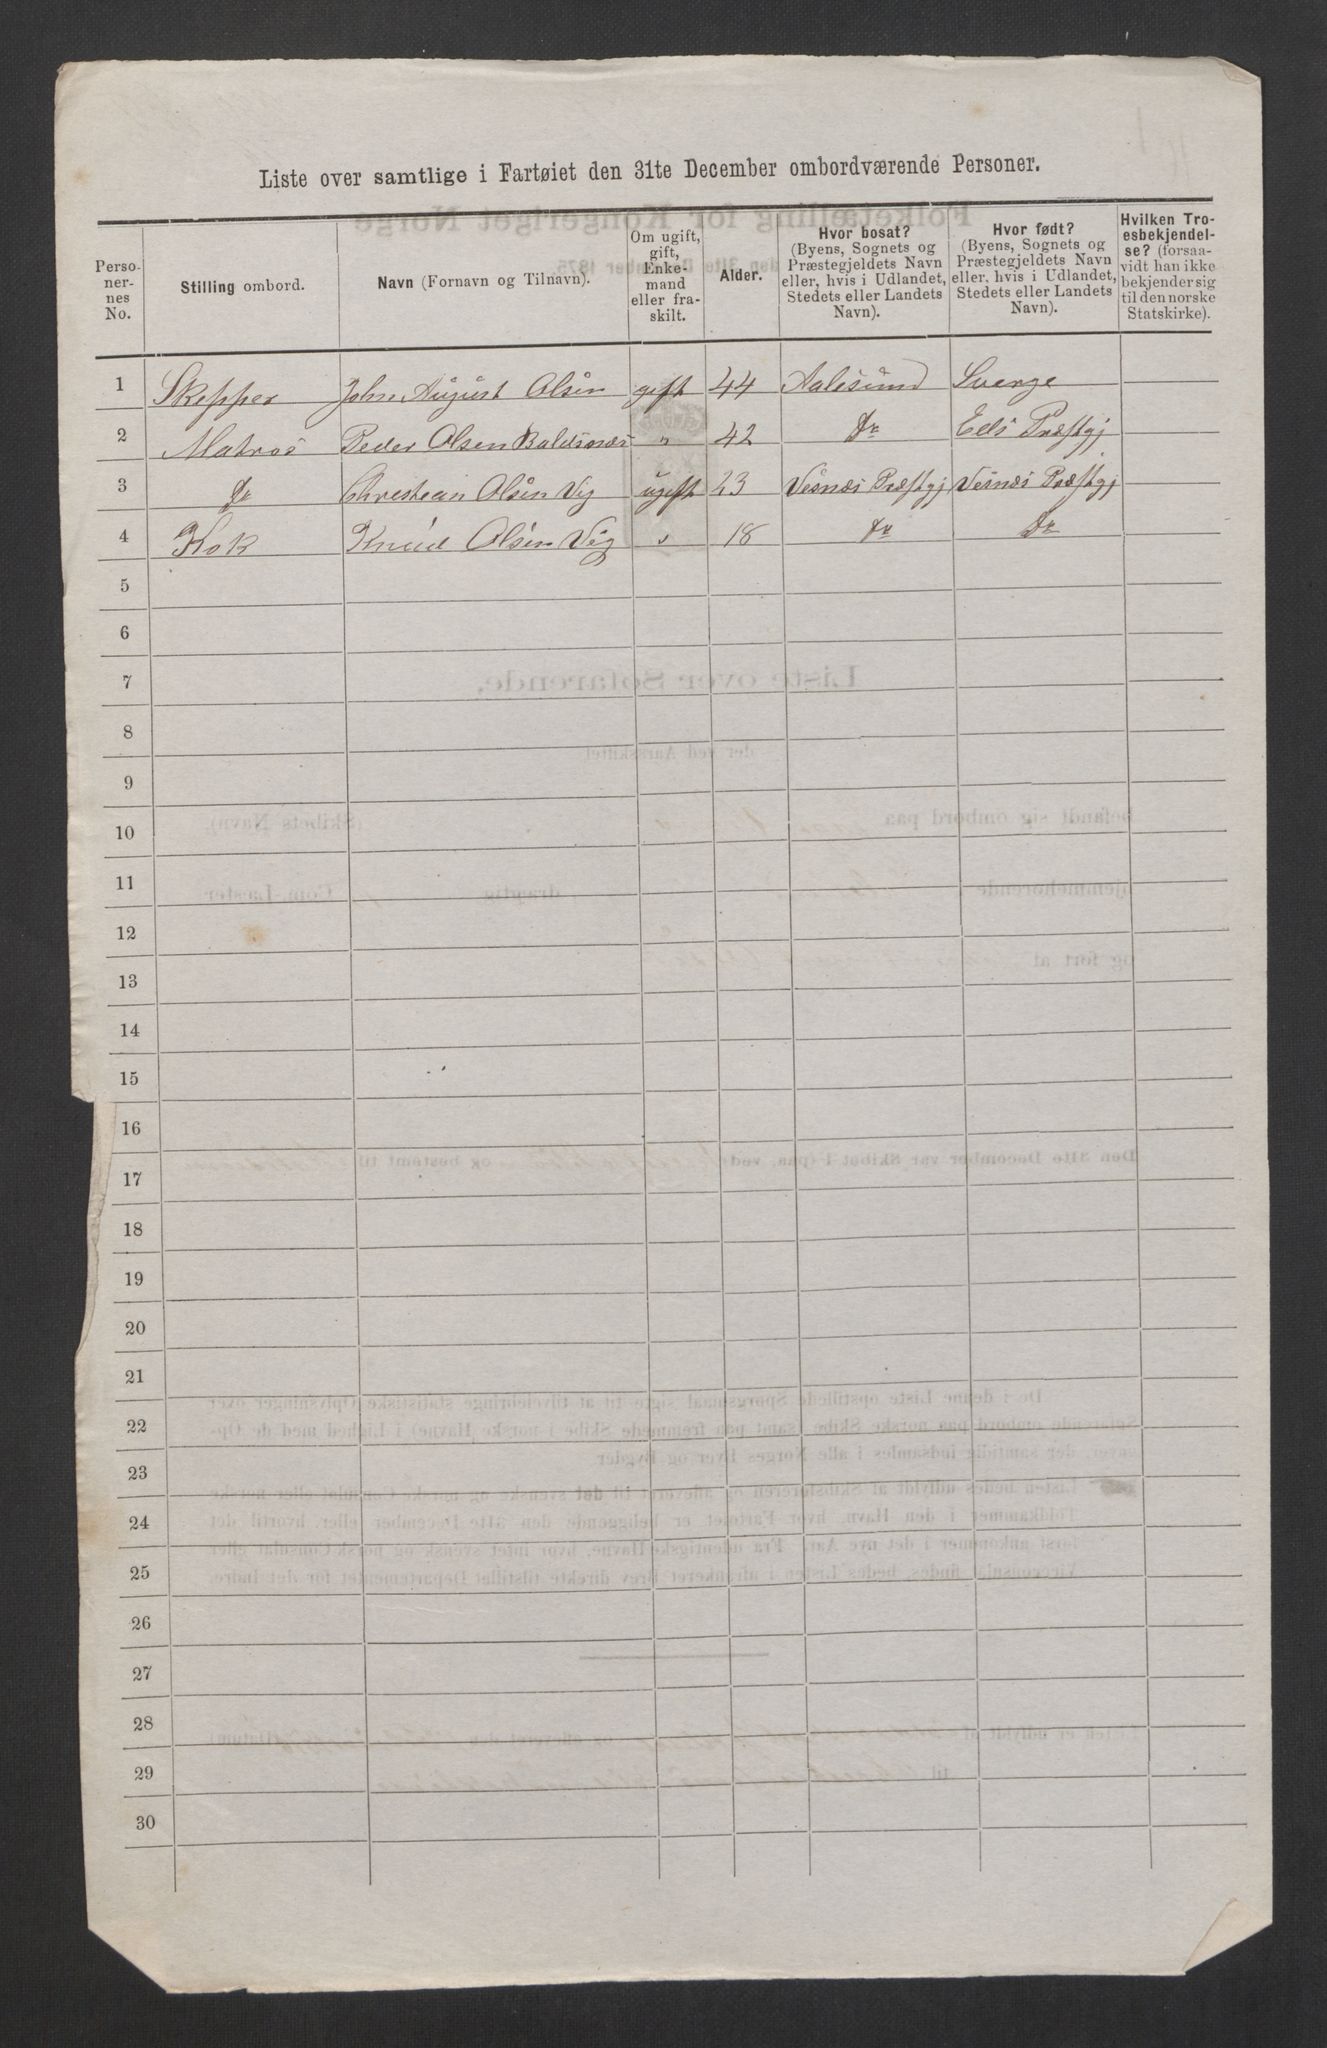 Liste over samtlige i Fartøiet den 31te December ombordværende Personer.
Personernes No. | Stilling ombord. | Navn (Fornavn og Tilnavn). | Om ugift, gift, Enkemand eller fraskilt. | Alder. | Hvor bosat? (Byens, Sognets og Præstegjeldets Navn eller, hvis i Udlandet, Stedets eller Landets Navn). | Hvor født? (Byens, Sognets og Præstegjeldets Navn eller, hvis i Udlandet, Stedets eller Landets Navn). | Hvilken Troesbekjendelse? (forsaavidt han ikke bekjender sig til den norske Statskirke).
1 Skepper John August Olsen gift 44 Aalesund Sverge
2 Matros Peder Olsen Baldsnæs " 42 Do Eds Præstgj
3 Do Chrestean Olsen Vig ugift 23 Vesnæs Præstgj Vesnæs Præstgj
4 Kok Knud Olsen Vig " 18 Do Do
5
6
7
8
9
10
11
12
13
14
15
16
17
18
19
20
21
22
23
24
25
26
27
28
29
30